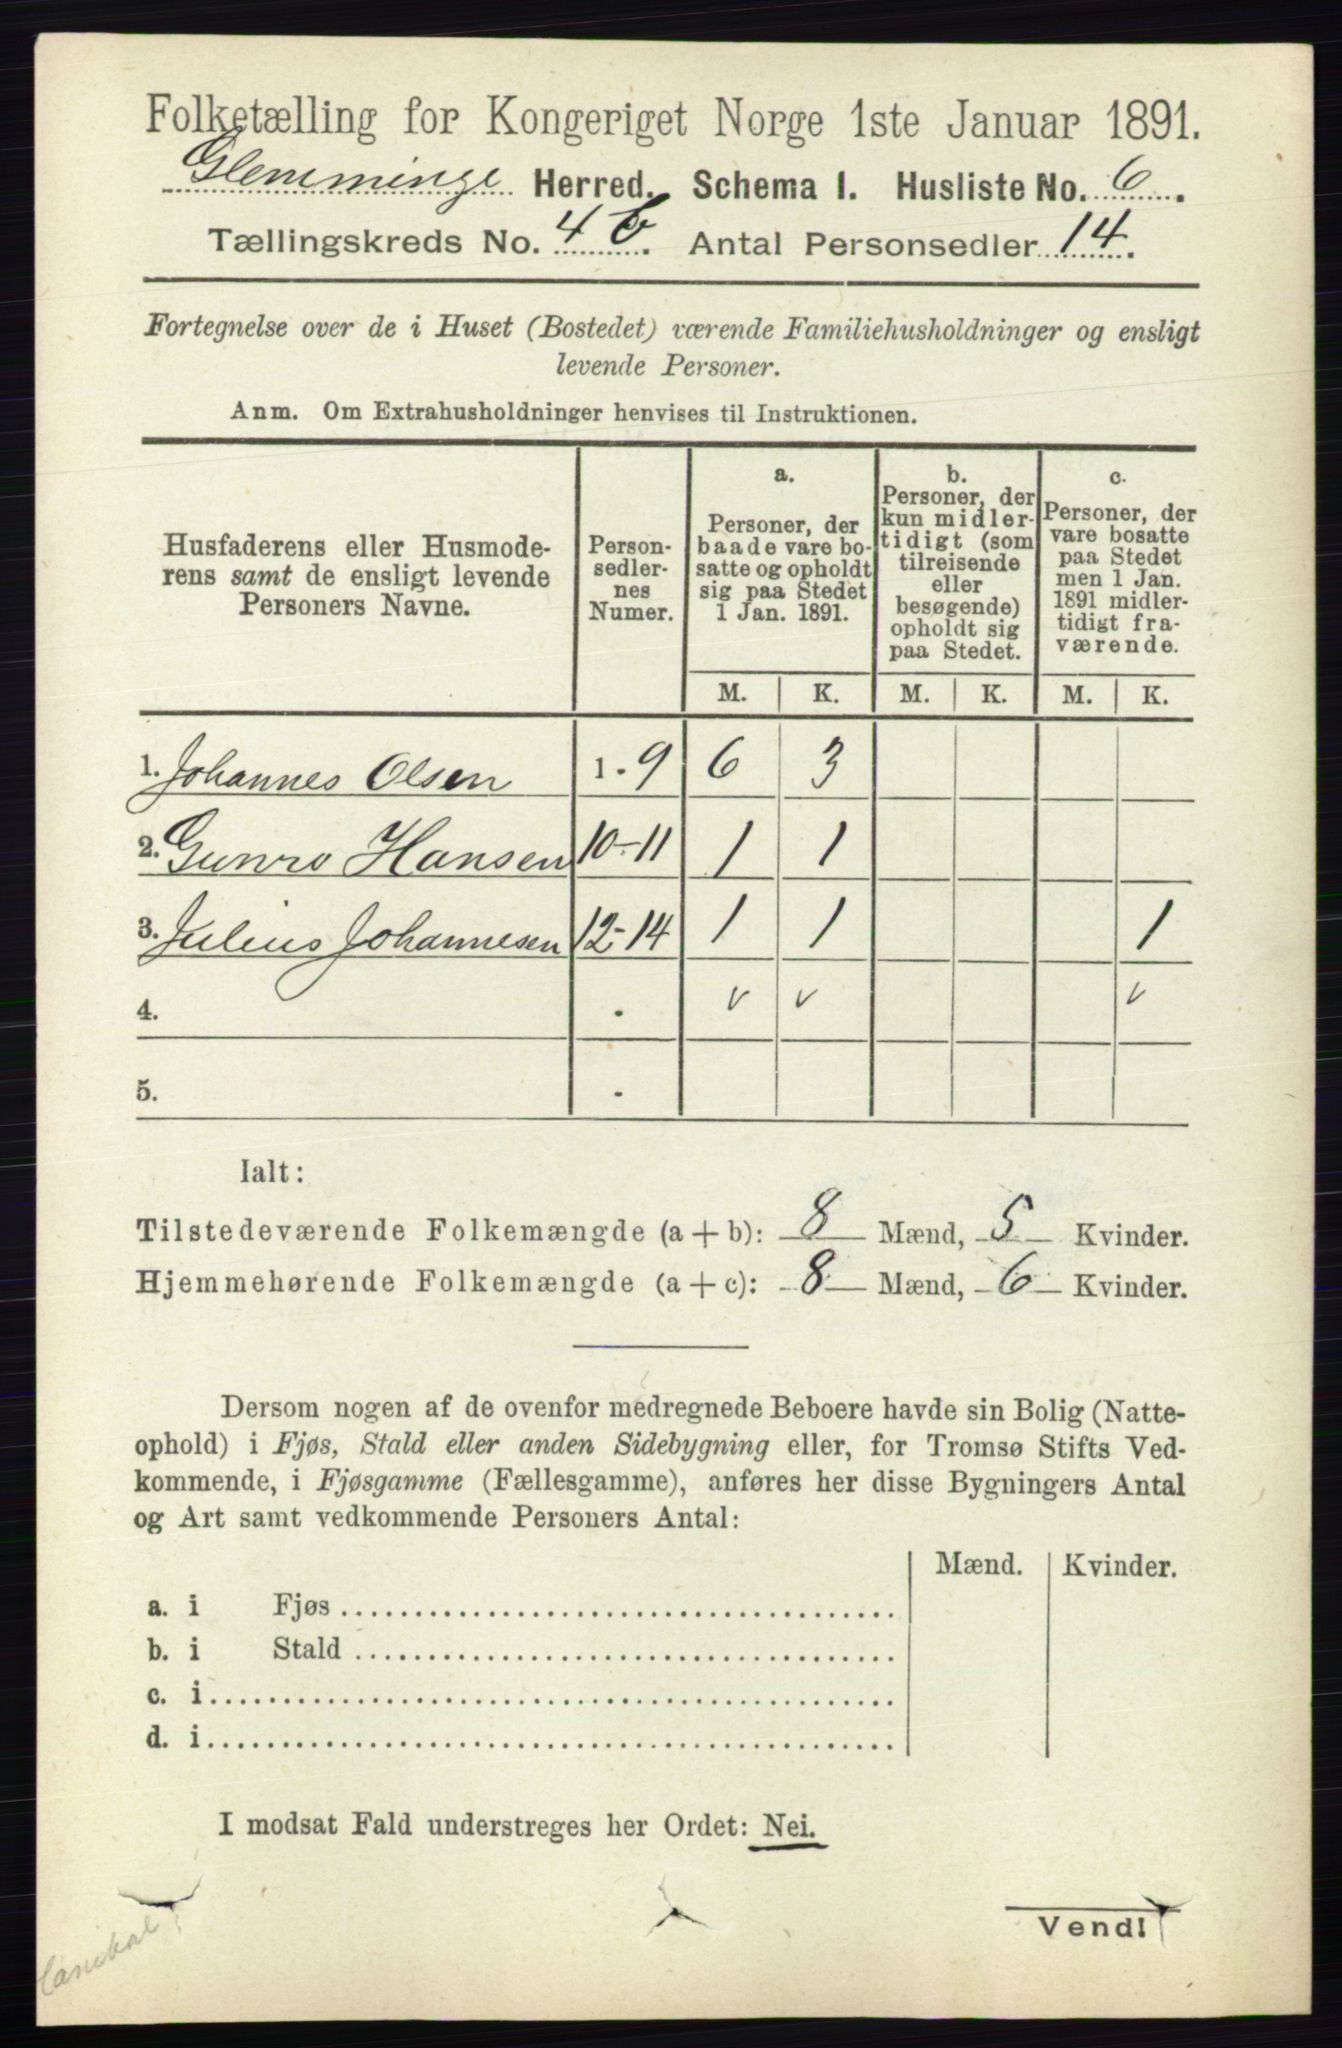 Folketælling for Kongeriget Norge 1ste Januar 1891.
Glemminge Herred. Schema I. Husliste No. 6.
Tællingskreds No. 4 b. Antal Personsedler 14.
Fortegnelse over de i Huset (Bostedet) værende Familiehusholdninger og ensligt
levende Personer.
Anm. Om Extrahusholdninger henvises til Instruktionen.
Husfaderens eller Husmode-
rens samt de ensligt levende
Personers Navne.
Person-
sedler-
nes
Numer.
a.
Personer, der
baade vare bo-
satte og opholdt
sig paa Stedet
1 Jan. 1891.
b.
Personer, der
kun midler-
tidigt (som
tilreisende
eller
besøgende)
opholdt sig
paa Stedet.
c.
Personer, der
vare bosatte
paa Stedet
men 1 Jan.
1891 midler-
tidigt fra-
værende.
M. K. M. K. M. K.
1. Johannes Olsen 1 - 9 6 3
2. Gunro Hansen 10-11 1 1
3. Julius Johannesen 12-14 1 1 1
4. . v v v
5. -
Ialt:
Tilstedeværende Folkemængde (a + b): 8 Mænd, 5 Kvinder.
Hjemmehørende Folkemængde (a + c): 8 Mænd, 6 Kvinder.
Dersom nogen af de ovenfor medregnede Beboere havde sin Bolig (Natte-
ophold) i Fjøs, Stald eller anden Sidebygning eller, for Tromsø Stifts Ved-
kommende, i Fjøsgamme (Fællesgamme), anføres her disse Bygningers Antal
og Art samt vedkommende Personers Antal:
Mænd. Kvinder.
a. i Fjøs
b. i Stald
c. i
d. i
I modsat Fald understreges her Ordet: Nei.
Vend!